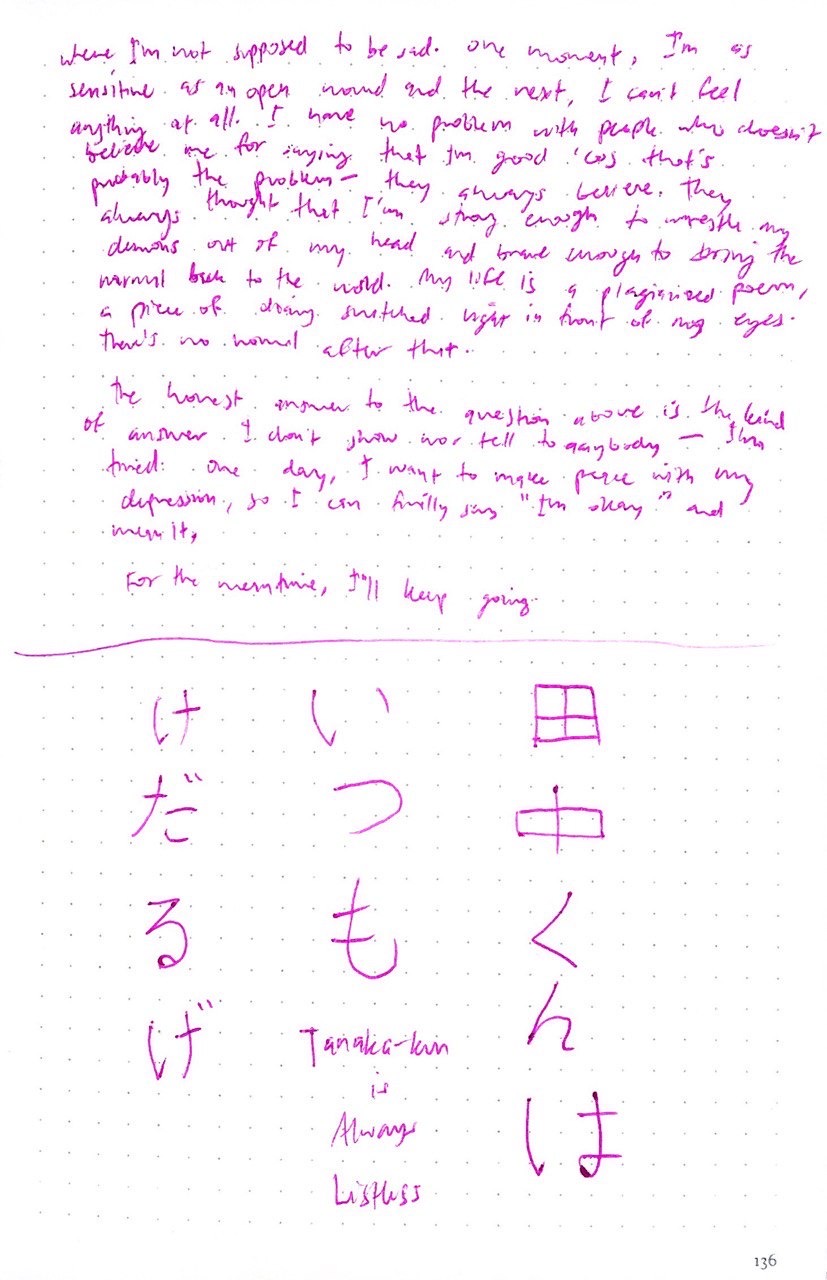 where I'm not supposed to be sad. one moment, I'm as
sensitive as an open wound and the next, I can't feel
anything at all. I have no problem with people who doesn't
believe me for saying that I'm good 'cos that's
probably the problem — they always believe. They
always thought that I'm strong enough to wrestle my
demons out of my head and brave enough to bring the
normal back to the world. My life is a plagiarized poem,
a piece of diary snatched right in front of my eyes.
There's no normal after that.
The honest answer to the question above is the kind
of answer I don't show nor tell to anybody — I'm
tired. One day, I want to make peace with my
depression, so I can finally say "I'm okay" and
mean it.
For the meantime, I'll keep going.
田中くんは
いつも
けだるげ
Tanaka-kun
is
Always
Listless
136